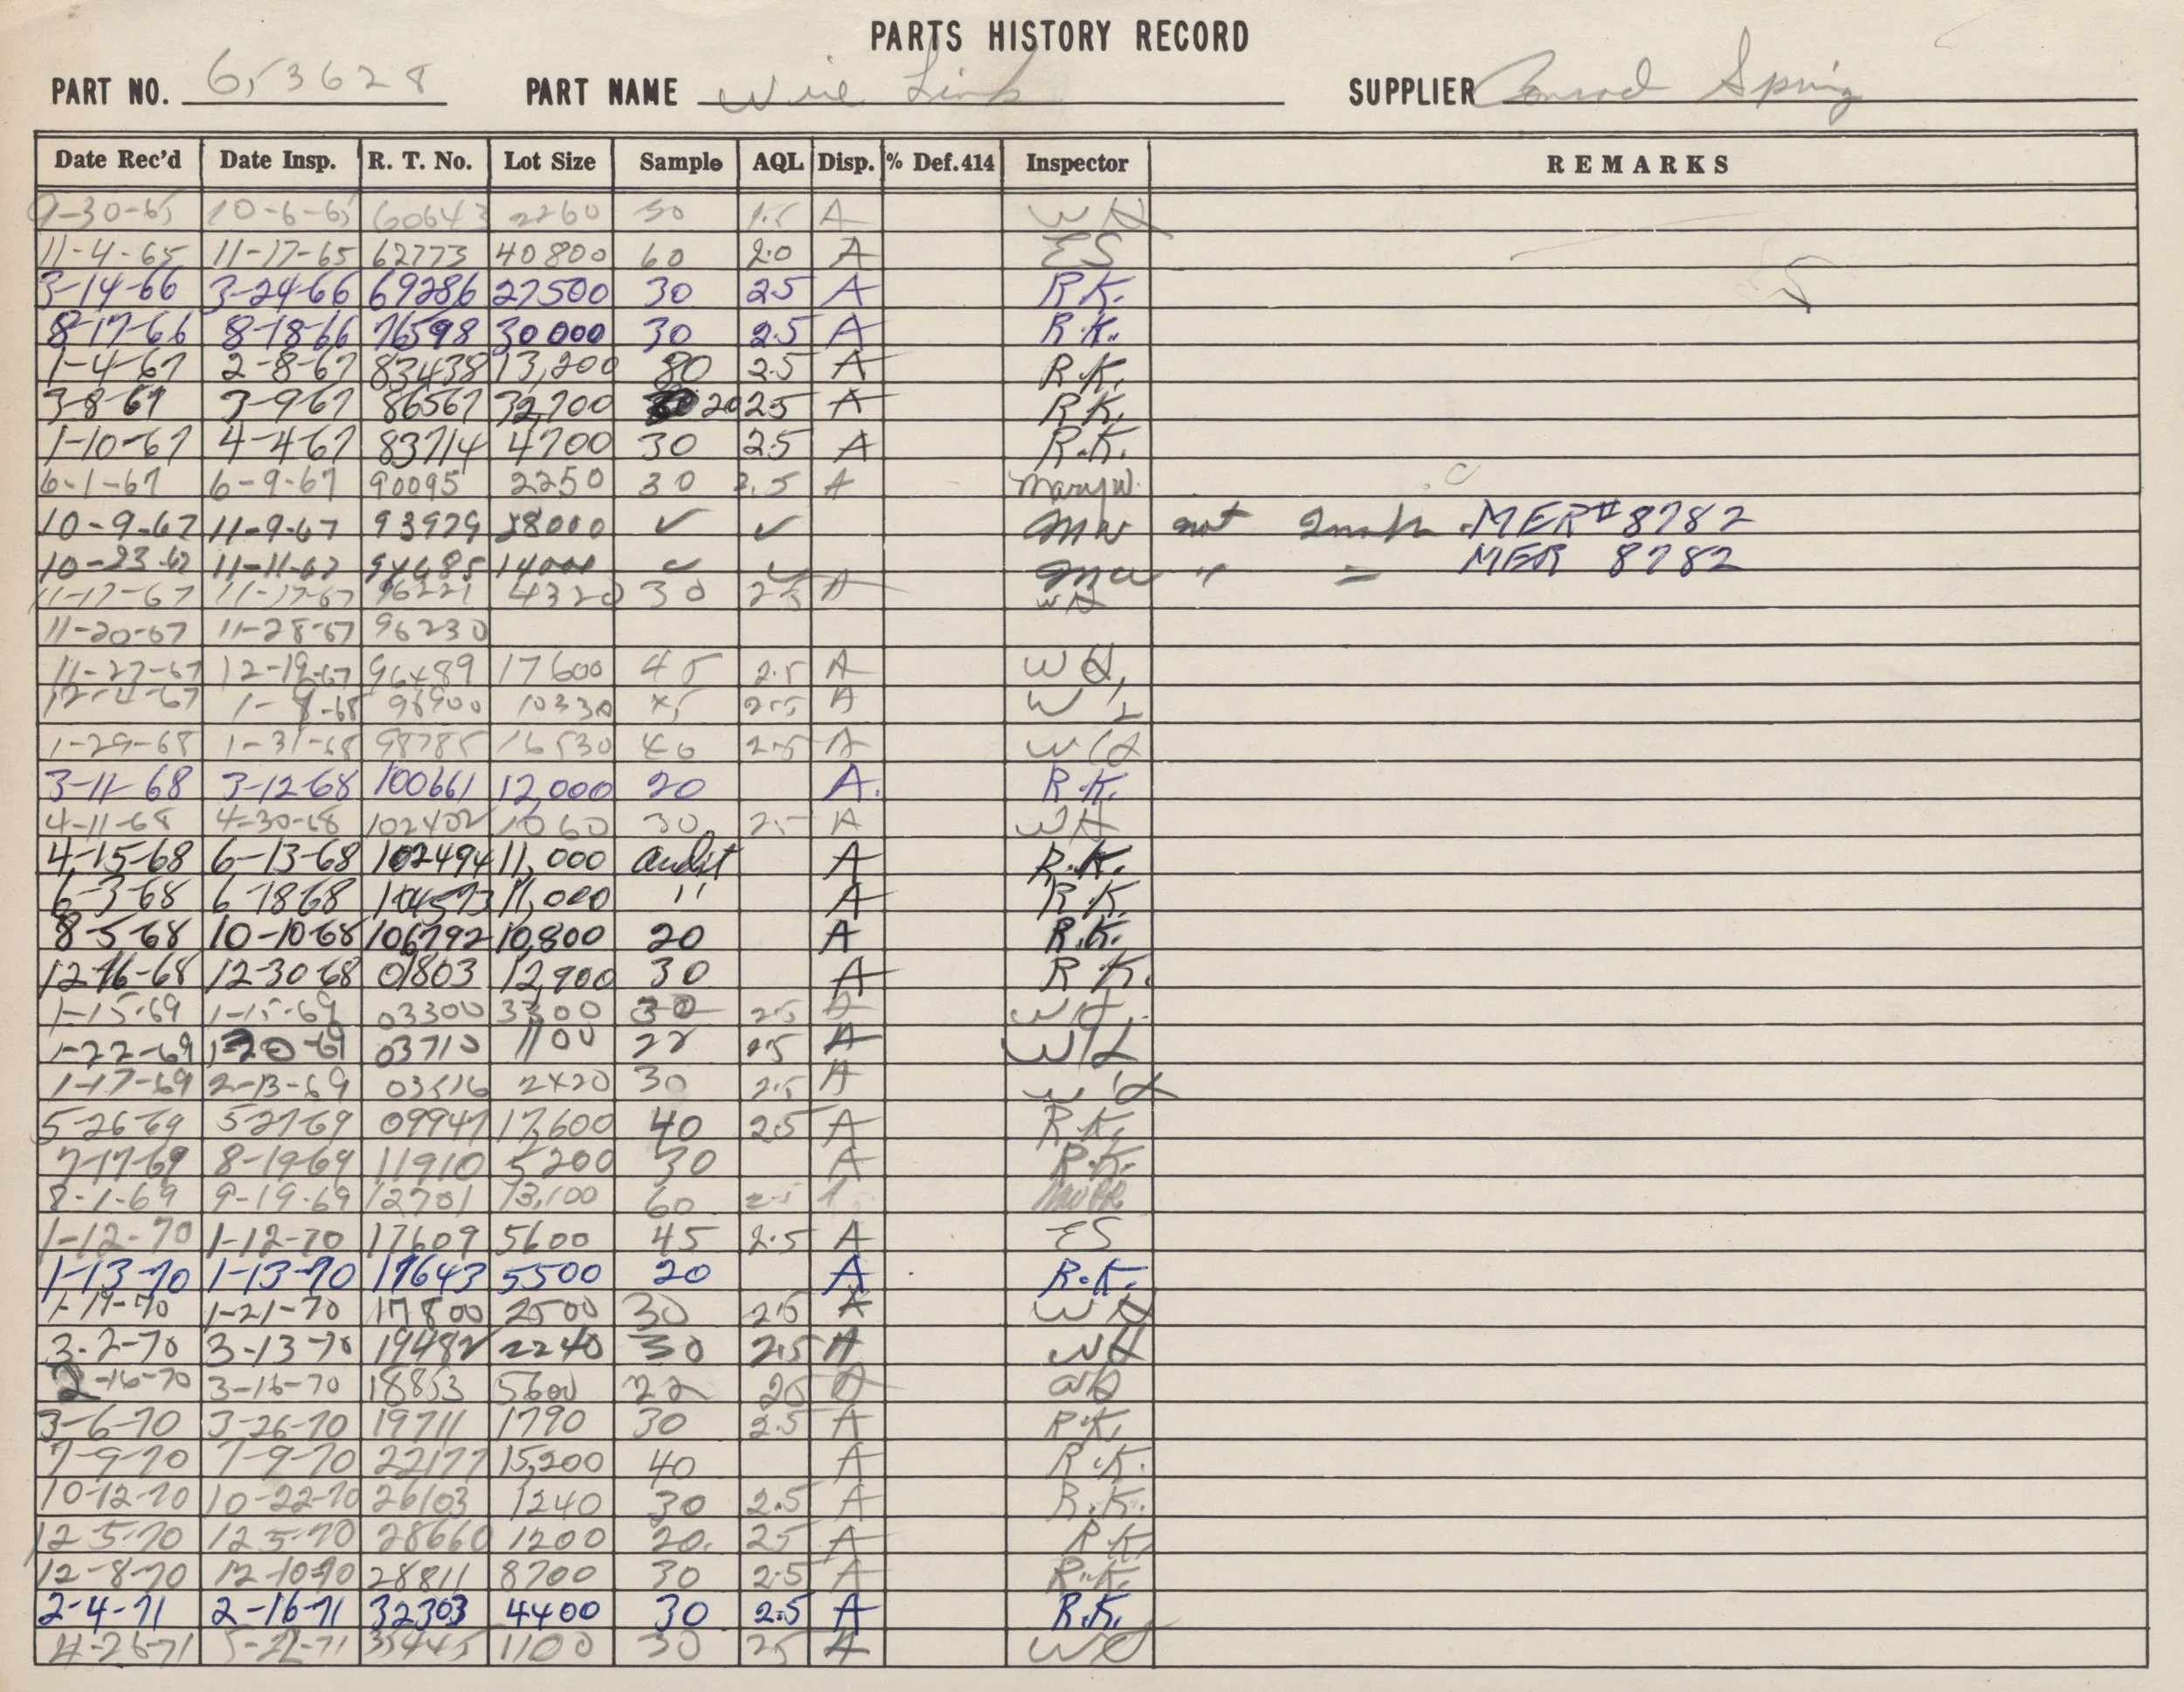 PARTS HISTORY RECORD
PART NO. 653628 PART NAME Wire Link SUPPLIER Conrad Spring
Date Rec'd Date Insp. R. T. No. Lot Size Sample AQL Disp. % Def. 414 Inspector REMARKS
9-30-65 10-6-65 60643 2260 30 1.5 A WH
11-4-65 11-17-65 62773 40800 60 2.0 A ES
3-14-66 3-24-66 69286 27500 30 2.5 A R.K.
8-17-66 8-18-66 76598 30000 30 2.5 A R.K.
1-4-67 2-8-67 83438 13,200 80 2.5 A R.K.
3-8-67 3-9-67 86567 32,700 20 2.5 A R.K.
1-10-67 4-4-67 83714 4700 30 2.5 A R.K.
6-1-67 6-9-67 90095 2250 30 2.5 A Mary W.
10-9-67 11-9-67 93979 28000 ✓ ✓ MW not MER# 8782
10-23-67 11-11-67 14000 ✓ ✓ MW " = MER 8782
11-17-67 11-17-67 96221 4320 30 2.5 A WH
11-20-67 11-28-67 96230
11-27-67 12-19-67 96489 17600 45 2.5 A WH
12-4-67 1-9-68 96900 10330 45 2.5 A W
1-29-68 1-31-68 98785 16530 40 2.5 A WH
3-11-68 3-12-68 100661 12,000 20 A. R.K.
4-11-68 4-30-68 102402 1060 30 2.5 A WH
4-15-68 6-13-68 102494 11,000 audit A R.K.
6-3-68 6-18-68 104573 11,000 '' A R.K.
8-5-68 10-10-68 106792 10,800 20 A R.K.
12-16-68 12-30-68 01803 12,900 30 A R.K.
1-15-69 1-15-69 03300 3300 30 2.5 A WH
1-22-69 1-20-69 03710 1100 22 2.5 A WH
1-17-69 2-13-69 03516 2420 30 2.5 A WH
5-26-69 5-27-69 09947 17,600 40 2.5 A R.K.
7-17-69 8-19-69 11910 5200 30 A R.K.
8-1-69 9-19-69 12701 13,100 60 2.5
1-12-70 1-12-70 17609 5600 45 2.5 A ES
1-13-70 1-13-70 17643 5500 20 A R.K.
1-19-70 1-21-70 17800 2500 30 2.5 A WH
3-2-70 3-13-70 19482 2240 30 2.5 A WH
2-16-70 3-16-70 18853 5600 22 2.5 A
3-6-70 3-26-70 19711 1790 30 2.5 A R.K.
7-9-70 7-9-70 22177 15,200 40 A R.K.
10-12-70 10-22-70 26103 1240 30 2.5 A R.K.
12-5-70 12-5-70 28660 1200 20. 2.5 A R.K.
12-8-70 12-10-70 28811 8700 30 2.5 A R.K.
2-4-71 2-16-71 32303 4400 30 2.5 A R.K.
4-26-71 5-22-71 35445 1100 30 2.5 A